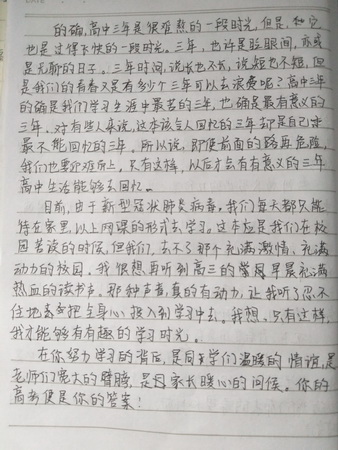 的确,高中三年是很难熬的一段时光,但是,和它
也是过得飞快的一段时光。三年,也许是眨眼间,亦或
是无聊的日子。三年时间,说长也不长,说短也不短,但
是我们的青春又是有多少个三年可以去浪费呢?高中三年
的确是我们学习生涯中最苦的三年,也确是最有意义的
三年。对有些人来说,这本该令人回忆的三年却是自己
最不能回忆的三年。所以说,即使前面的路再危险,
我们也要迎难而上,只有这样,以后才会有有意义的三年
高中生活能够去回忆。
目前,由于新型冠状肺炎病毒,我们每天都只能
待在家里,以上网课的形式去学习。这本应是我们在校
园苦读的时候,但我们,去不了那个充满激情、充满
动力的校园。我很想再听到高三的早晨充满
热血的读书声。那种声音真的有动力,让我听了忍不
住地去把全身心投入到学习中去。我想,只有这样,
我才能够有有趣的学习时光。
在你努力学习的背后,是同学们温暖的情谊,是
老师们宽大的臂膀,是家长暖心的问候。你的
高考便是你的答案!